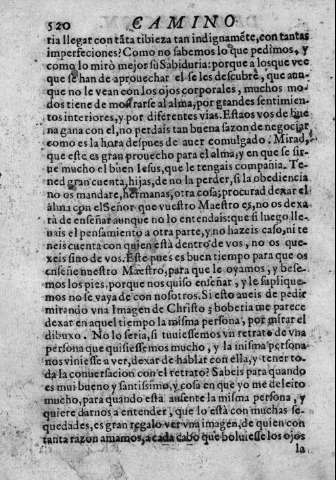 520 CAMINO
ria llegar con tãta tibieza tan indignamẽte, con tantas
imperfeciones? Como no sabemos lo que pedimos, y
como lo mirò mejor su Sabiduria: porque a los que vee
que se han de aprouechar el se les descubre, que aun-
que no le vean con los ojos corporales, muchos mo-
dos tiene de mostrarse al alma, por grandes sentimien-
tos interiores, y por diferentes vias. Estaos vos de bue
na gana con el, no perdais tan buena sazon de negociar
como es la hora despues de auer comulgado. Mirad,
que este es gran prouecho para el alma, y en que se sir-
ue mucho el buen Iesus, que le tengais compañia. Te-
ned gran cuenta, hijas, de no la perder, si la obediencia
no os mandare, hermanas, otra cosa; procurad dexar el
alma con el Señor que vuestro Maestro es, no os dexa
rà de enseñar aunque no lo entendais: que si luego lle-
uais el pensamiento a otra parte, y no hazeis caso, ni te
neis cuenta con quien està dentro de vos, no os que-
xeis sino de vos. Este pues es buen tiempo para que os
enseñe nuestro Maestro, para que le oyamos, y bese-
mos los pies, porque nos quiso enseñar, y le suplique-
mos no se vaya de con nosotros. Si esto aueis de pedir
mirando vna Imagen de Christo, boberia me parece
dexar en aquel tiempo la misma persona, por mirar el
dibuxo. No lo seria, si tuuiessemos vn retrato de vna
persona que quisiessemos mucho, y la misma persona
nos viniesse a ver, dexar de hablar con ella, y tener to-
da la conuersacion con el retrato? Sabeis para quando
es mui bueno y santissimo, y cosa en que yo me deleito
mucho, para quando està ausente la misma persona, y
quiere darnos a entender, que lo està con muchas se-
quedades, es gran regalo ver vna imagen, de quien con
tanta razon amamos, a cada cabo que boluiesse los ojos
la